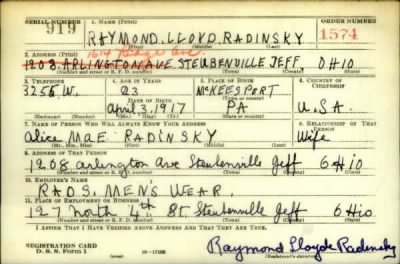 SERIAL NUMBER 1. NAME (Print) ORDER NUMBER
919 RAYMOND. LLOYD. RADINSKY 1574
(First) (Middle) (Last)
1614 Ridge Ave.
2. ADDRESS (Print)
1208. ARLINGTON AVE STEUBENVILLE JEFF. OHIO
(Number and street or R. F. D. number) (Town) (County) (State)
3. TELEPHONE 4. AGE IN YEARS 5. PLACE OF BIRTH 6. COUNTRY OF CITIZENSHIP
3256.W. 23 McKEESPORT
DATE OF BIRTH
April. 3. 1917 PA U.S.A.
7. NAME OF PERSON WHO WILL ALWAYS KNOW YOUR ADDRESS 8. RELATIONSHIP OF THAT PERSON
Alice MAE. RADINSKY Wife
(Mr., Mrs., Miss) (First) (Middle) (Last)
9. ADDRESS OF THAT PERSON
1208 Arlington Ave Steubenville Jeff OHio
(Number and street or R. F. D. number) (Town) (County) (State)
10. EMPLOYER'S NAME
RADS. MEN'S WEAR.
11. PLACE OF EMPLOYMENT OR BUSINESS
127 North 4th St. Steubenville Jeff OHio
(Number and street or R. F. D. number) (Town) (County) (State)
I AFFIRM THAT I HAVE VERIFIED ABOVE ANSWERS AND THAT THEY ARE TRUE.
REGISTRATION CARD
D. S. S. Form 1
Raymond Lloyde Radinsky
(Registrant's signature)